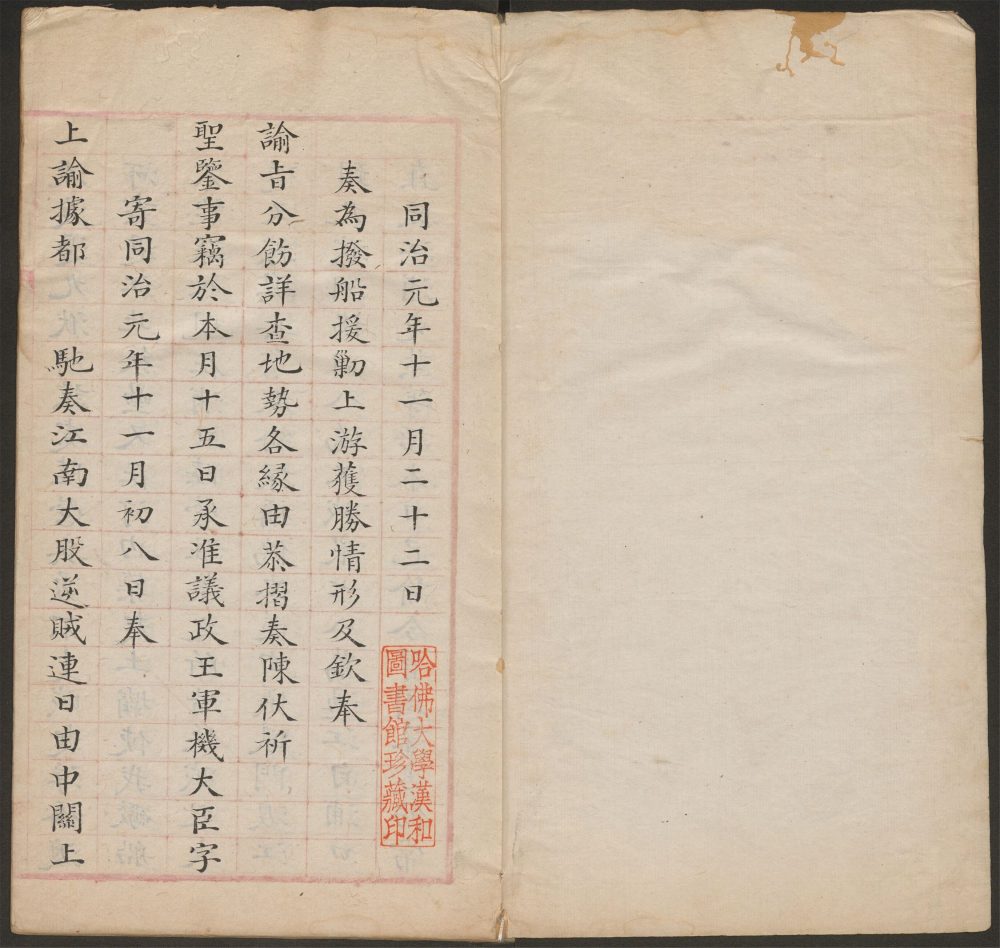 同治元年十一月二十二日
奏為撥船援勦上游獲勝情形及欽奉
諭旨分飭詳查地勢各緣由恭摺奏陳伏祈
聖鑒事竊於本月十五日承准議政王軍機大臣字
寄同治元年十一月初八日奉
上諭據都 馳奏江南大股逆賊連日由中關上
哈佛大學漢和
圖書館珍藏印